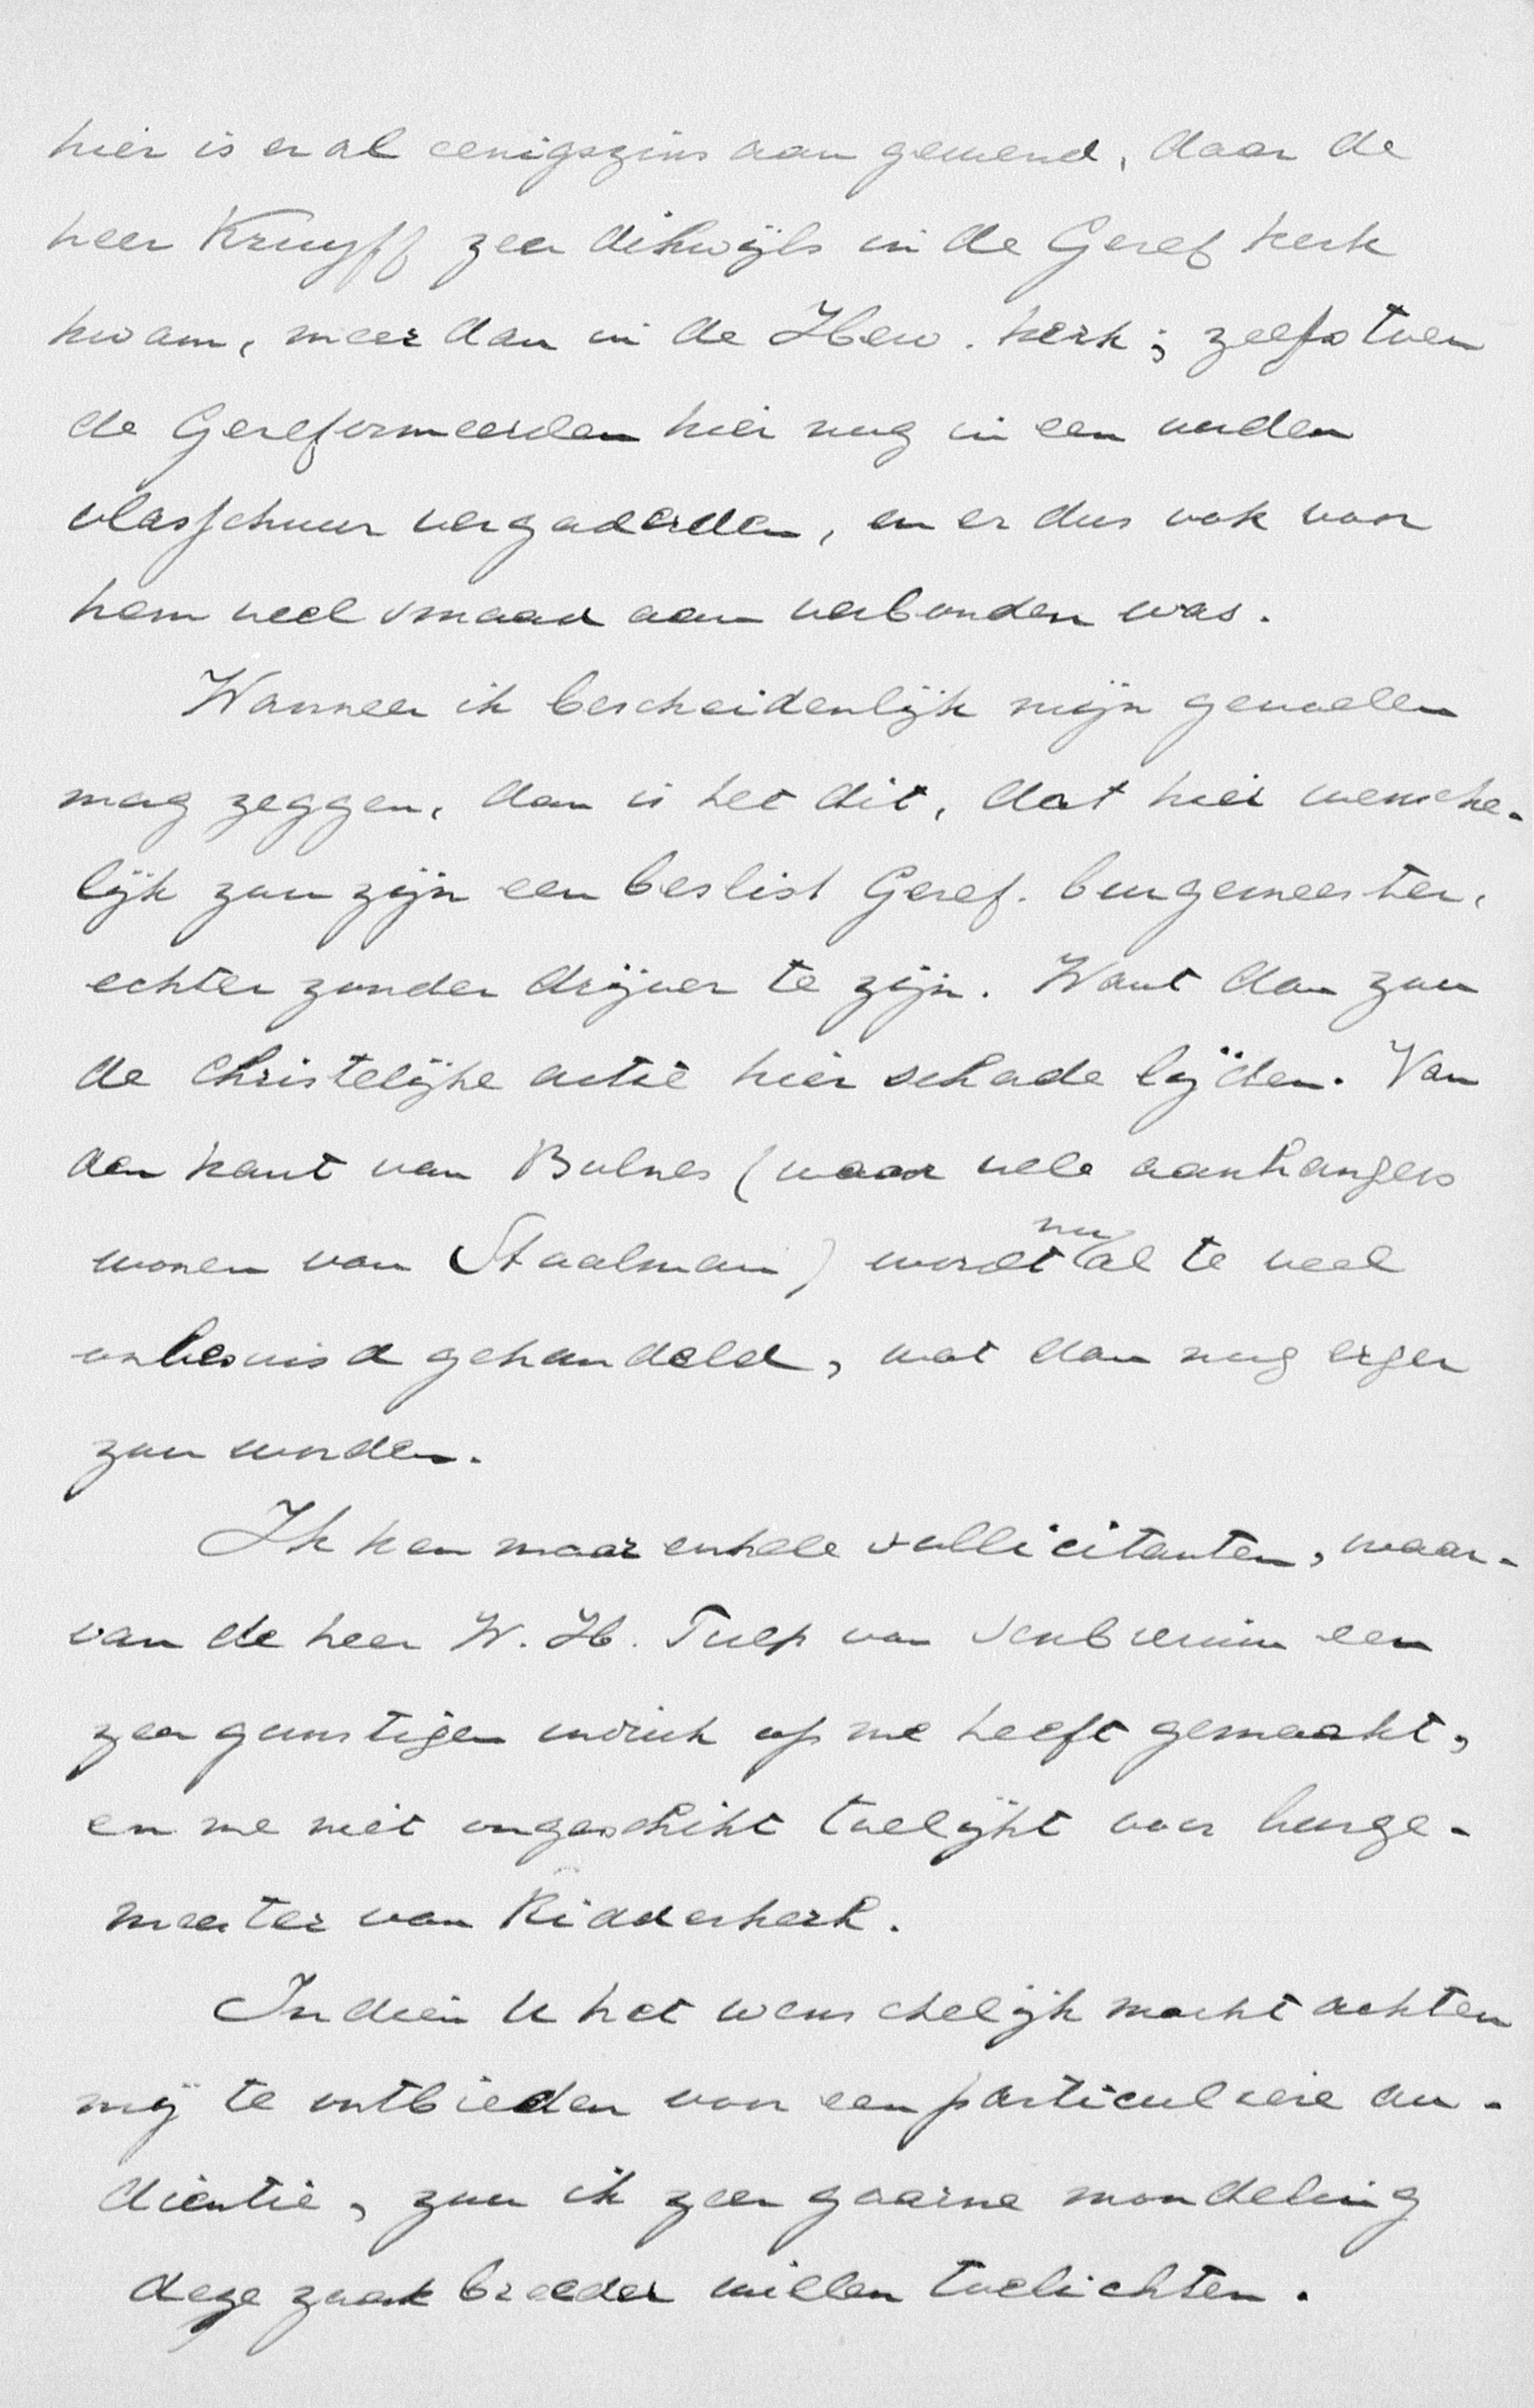 hier is er al eenigszins aan gewend, daar de
heer Kruyff zeer dikwijls in de Geref kerk
kwam, meer dan in de Herv. kerk; zelfs toen
de Gereformeerden hier nog in een ouden
vlasschuur vergaderden, en er dus ook voor
hem veel smaad aan verbonden was.
Wanneer ik bescheidenlijk mijn gevoelen
mag zeggen, dan is het dit, dat hier wensche-
lijk zou zijn een beslist Geref. burgemeester,
echter zonder drijver te zijn. Want dan zou
de Christelijke actie hier schade lijden. Van
den kant van Bolnes (waar vele aanhangers
wonen van Staalman) wordt nu al te veel
onbesuisd gehandeld, wat dan nog erger
zou worden.
Ik ken maar enkele sollicitanten, waar-
van de heer W. H. Tulp van een
zeer gunstigen indruk op me heeft gemaakt,
en me niet ongeschikt toelijkt voor burge-
meester van Ridderkerk.
Indien U het wenschelijk mocht achten
mij te ontbieden voor een particuliere au-
diëntie, zou ik zeer gaarne mondeling
deze zaak breeder willen toelichten.